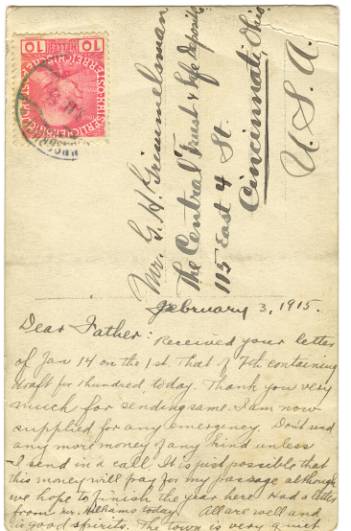 10 10
Mr. G. H. Grimmelsman
The Central Trust & Safe Deposit Co
115 East 4 St.
Cincinnati, Ohio.
U. S. A.
February 3, 1915.
Dear Father: Received your letter
of Jan 14 on the 1st. That of 7th containing
draft for 1 hundred, today. Thank you very
much for sending same. I am now
supplied for any emergency. Don't send
any more money of any kind unless
I send in a call. It is just possible that
this money will pay for my passage although
we hope to finish the year here. Had a letter
from Mr. Williams today. All are well and
in good spirits. The town is very quiet